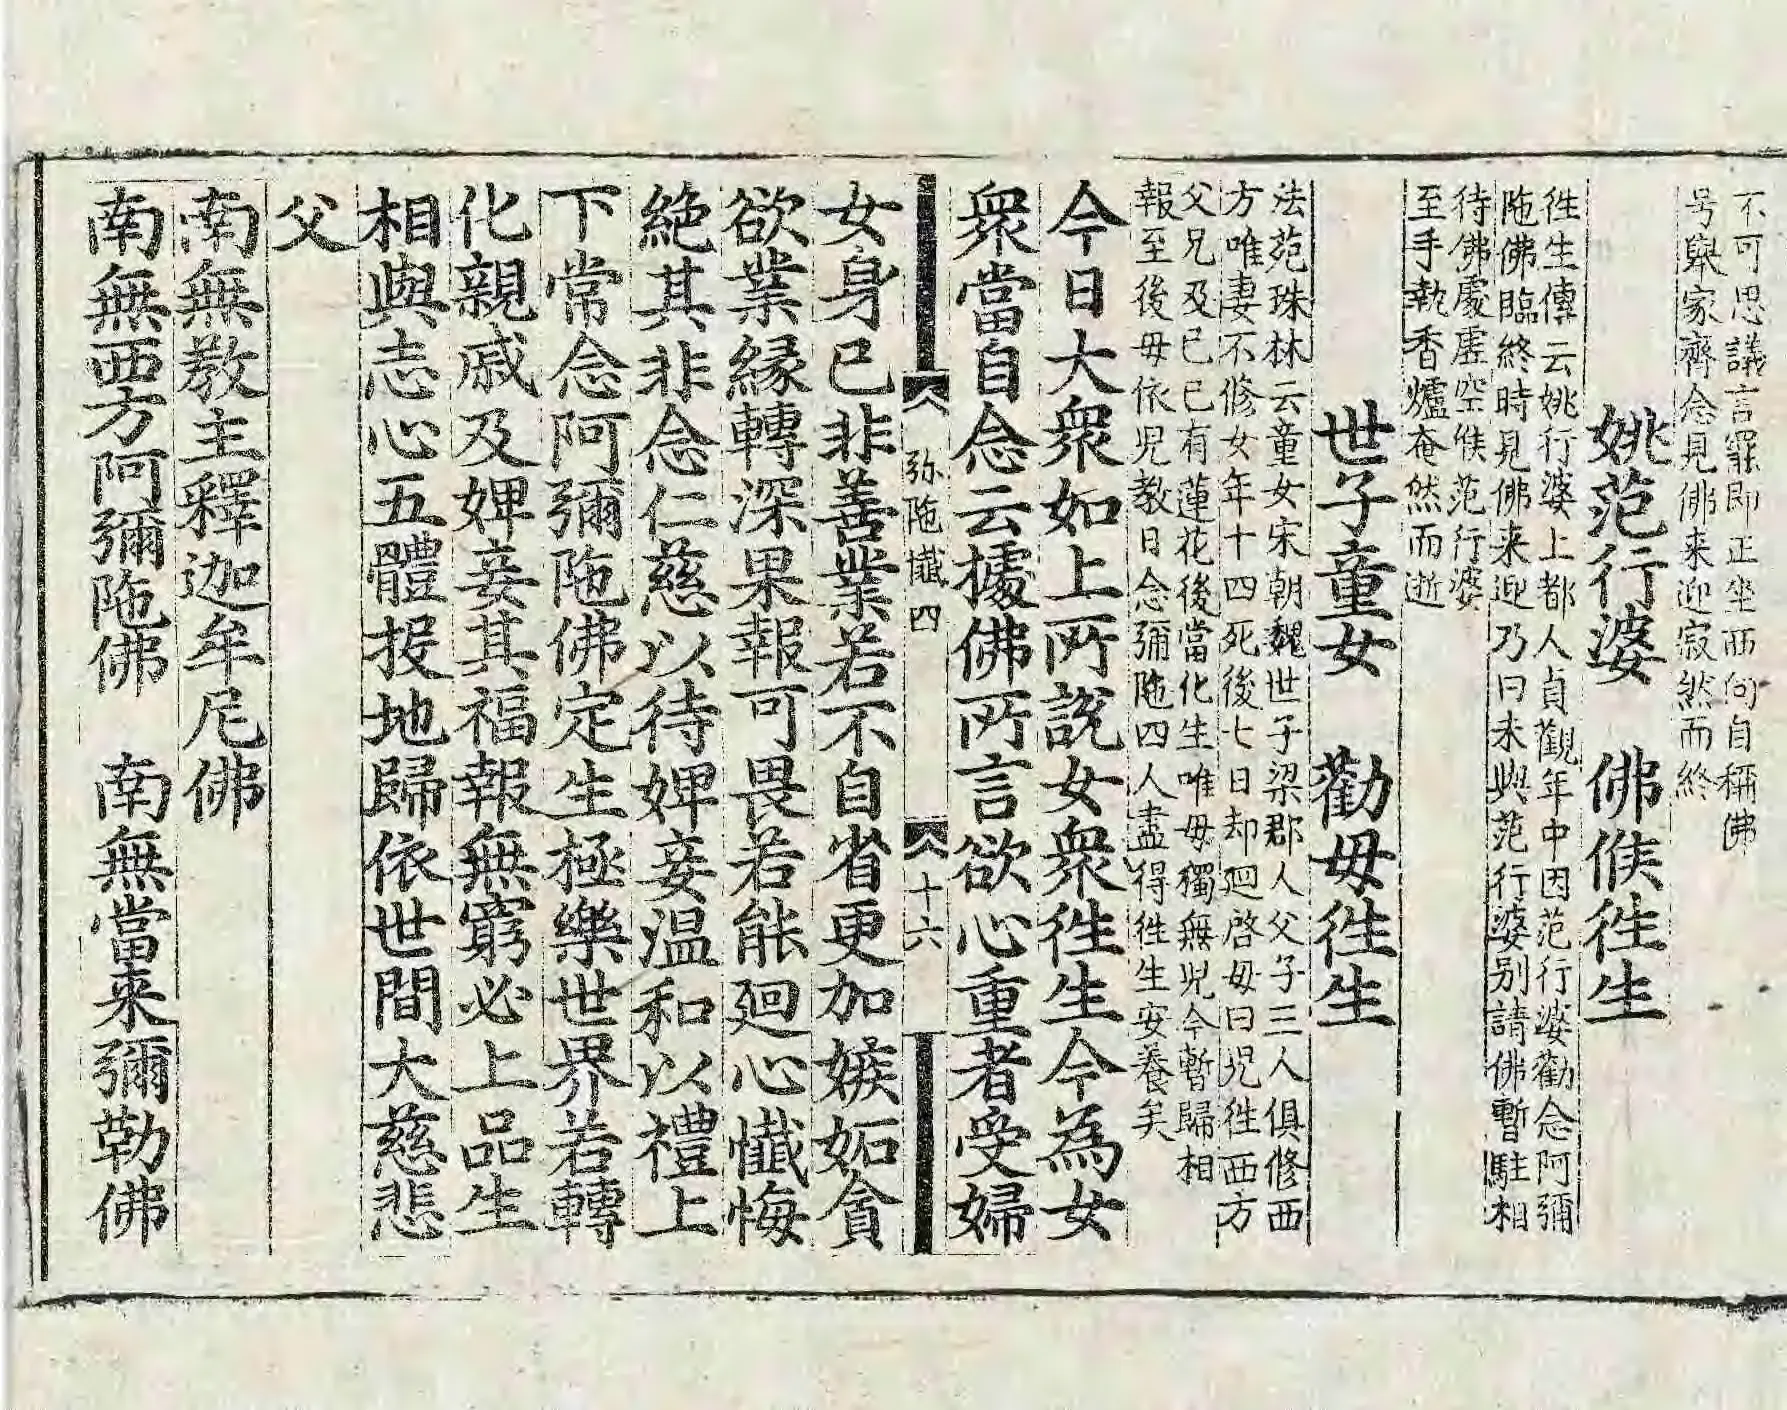 不可思議言訖即正坐西向自稱佛
号舉家齊念見佛来迎寂然而終
姚范行婆　佛候徃生
徃生傳云姚行婆上都人貞觀年中因范行婆勸念阿彌
陁佛臨終時見佛来迎乃曰未與范行婆别請佛暫駐相
待佛處虛空候范行婆
至手執香爐奄然而逝
世子童女　勸母徃生
法苑珠林云童女宋朝魏世子梁郡人父子三人俱修西
方唯妻不修女年十四死後七日却廻啓母曰児徃西方
父兄及已已有蓮花後當化生唯母獨無児今暫歸相
報至後母依児教日念彌陁四人盡得徃生安養矣
今日大衆如上所說女衆徃生今為女
衆當自念云據佛所言欲心重者受婦
弥陁懺四　十六
女身已非善業若不自省更加嫉妬貪
欲業緣轉深果報可畏若能廻心懺悔
絶其非念仁慈以待婢妾温和以禮上
下常念阿彌陁佛定生極樂世界若轉
化親戚及婢妾其福報無窮必上品生
相與志心五體投地歸依世間大慈悲
父
南無教主釋迦牟尼佛
南無西方阿彌陁佛　南無當來彌勒佛